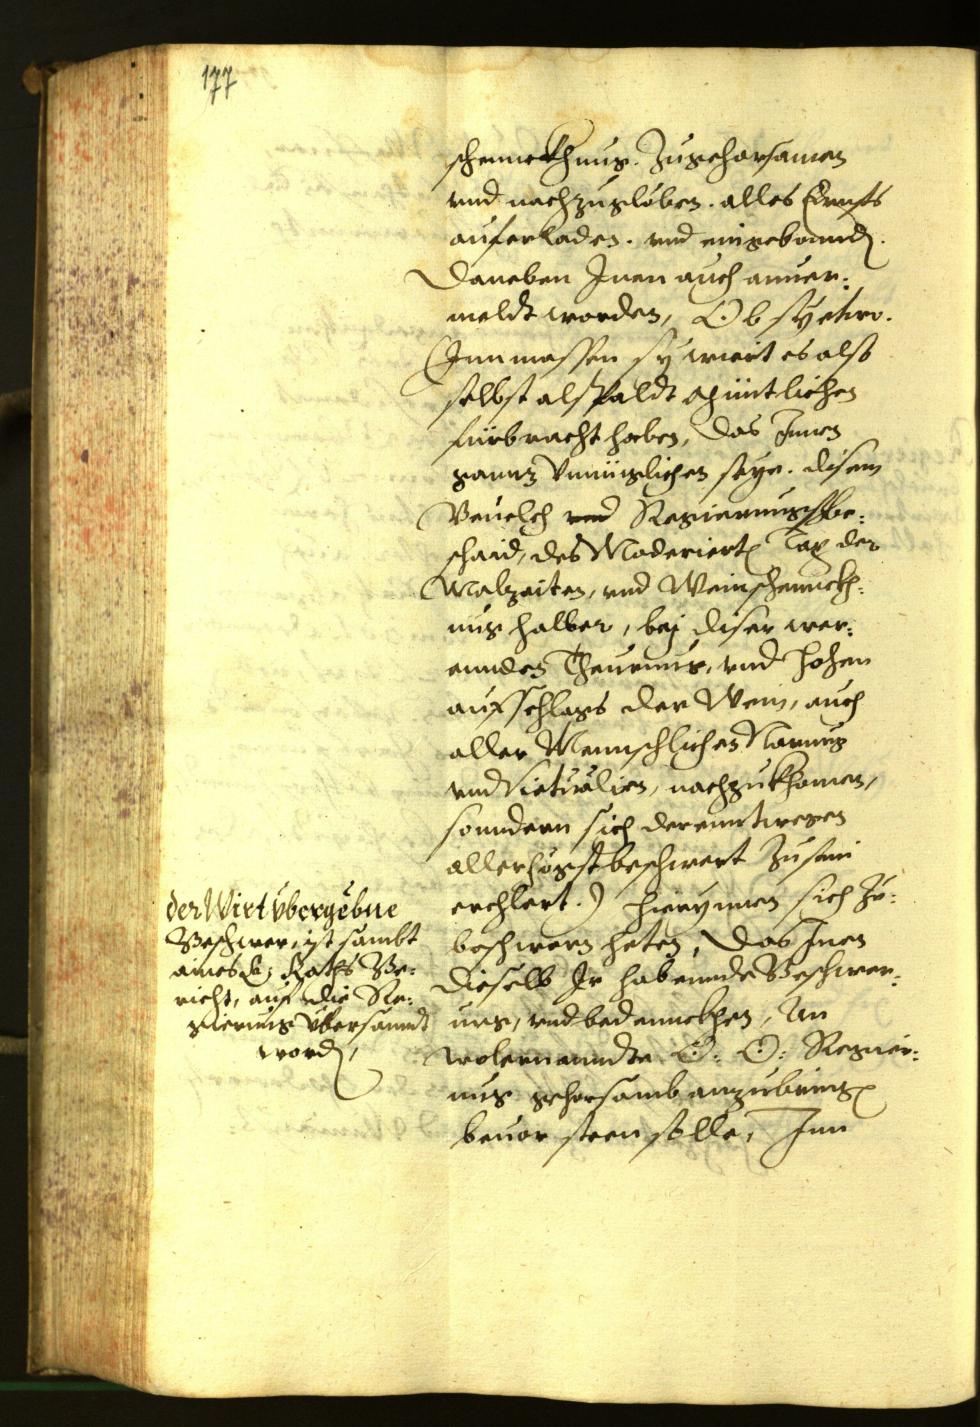 177
schennckhnus. Zugehorsamen
vnd nachzugloben. alles Ernsts
auferladen. vnd eingebonnden.
Daneben Inen auch anuer:
meldt worden, Ob sy etwo.
(Innmassen sy wiert es alß
selbst alßpaldt müntlichen
fürbracht haben, das Innen
gannz Vnmüglichen seye. disem
Beuelch Regierungsbe:
schaid, des Moderierten Tax der
Malzeiten, vnd Weinschennckh:
nus halber, bej diser wer:
ennden Theurung, vnd hohen
aufschlags der Wein, auch
aller Mennschlichen Narung
vnd Victualien, nachzukhomen,
sonndern sich derenntwegen
allerhögst beschwert zu sein
erclert.) hierynnen sich zu:
beschwern heten, das Inen
dieselb Ir habennde Beschwer:
ung, vnd bedennckhen, An
wolernanndte O: Ö: Regier:
ung gehorsamb anzubringen
beuor steen solle, Inn
der Wirt übergebne
Beschwer, ist sambt
aines E: Raths Be:
richt, auf die Re:
gierung übersanndt
worden,